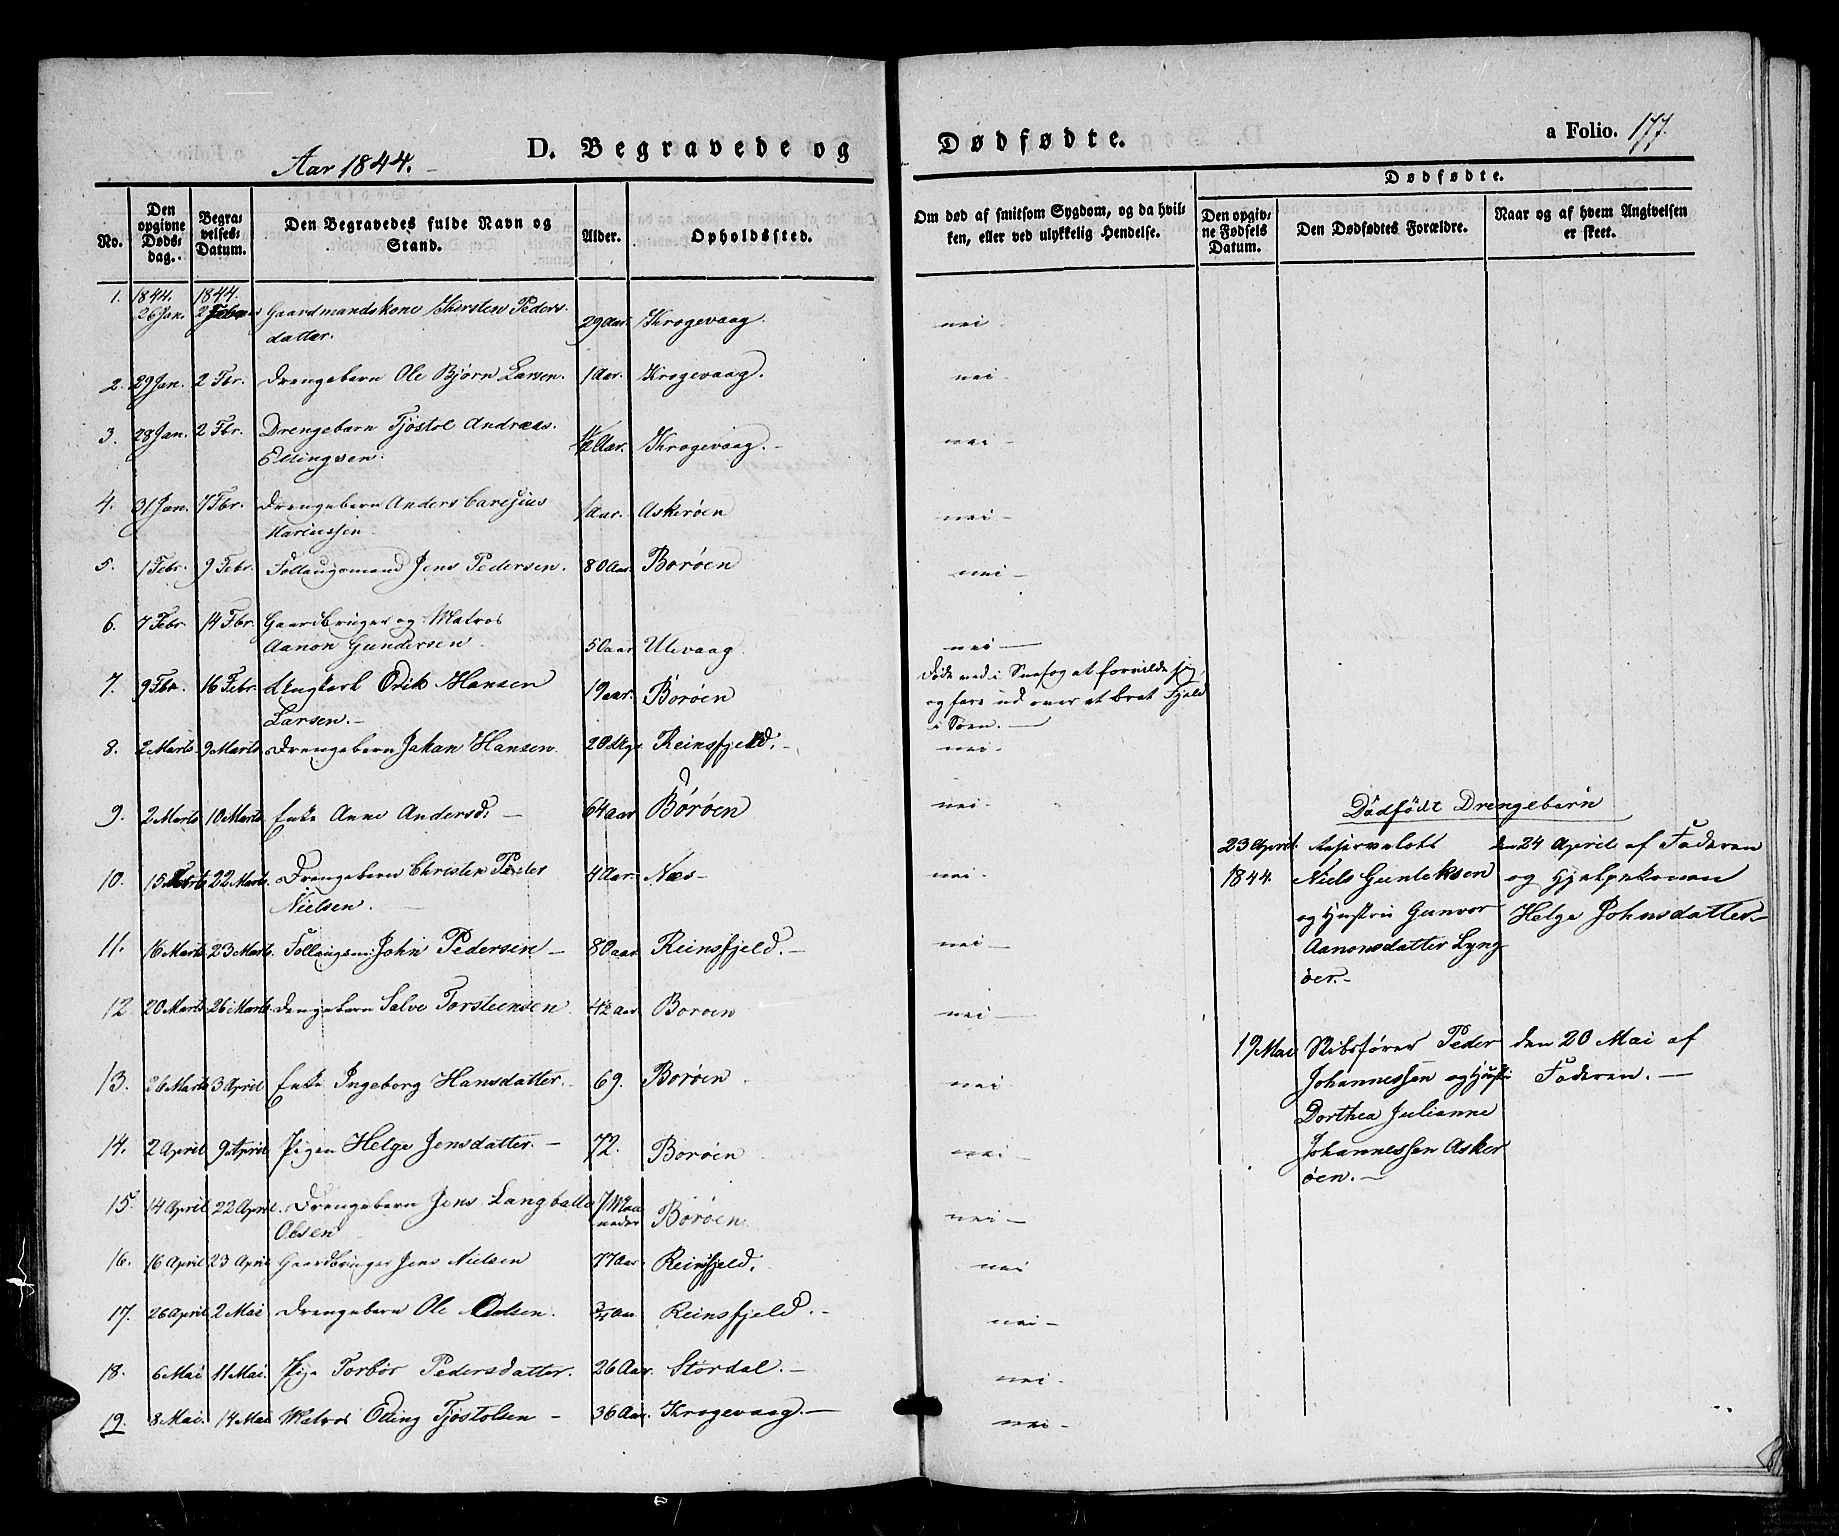 Aar 1844.
D. Begravede og
No.
Den opgivne Døds-dag.
Begra-velses-Datum.
Den Begravedes fulde Navn og Stand.
Alder.
Opholdssted.
1. 1844. 26 Jan. 1844. 2 Gaardmandskone Kjersten Peders- 29 Aar. Krogevaag.
datter.
2. 29 Jan. 2 Fbr. Drengebarn Ole Bjørn Larsen. 1 Aar. Krogevaag.
3. 28 Jan. 2 Fbr. Drengebarn Tjøstol Andreas 1/2 Aar. Krogevaag.
Ellingsen.
4. 31 Jan. 7 Fbr. Drengebarn Anders 1 Aar. Askerøen
Mariussen
5. 1 Febr. 9 Febr. Follaugsmand Jens Pedersen. 80 Aar. Borøen
6. 7 Febr 14 Fbr. Gaardbruger og Matros
Aanon Gundersen 50 aar Ulevaag
7. 9 Fbr. 16 Febr. Ungkarl Erik Hansen 19 aar. Borøen
Larsen.
8. 2 Marts 9 Marts Drengebarn Jakan Hansen 20 Reinsfjeld.
9. 2 Marts 10 Marts Enke Anne Andersd: 64 aar Borøen
10. 15 Marts 22 Marts. Drengebarn Christen Peder 4 Aar. Næs
Nielsen.
11. 16 Marts 23 Marts. Follaugsm: John Pedersen 80 aar Reinsfjeld.
12 20 Marts 26 Marts. Drengebarn Salve Torsteensen 42 aar Boroen
13. 26 Marts 3 April Enke Ingeborg Hansdatter. 69. Borøen
14. 2 April 9 April Pigen Helge Jensdatter. 72. Borøen
15. 14 April 22 April. Drengebarn Jens Langballe 7 Maa-
Olsen neder Borøen
16. 16 April 23 April Gaardbruger Jens Nielsen 77 Aar Reinsfjeld.
17. 26 April 2 Mai Drengebarn Ole Olsen. 3/4 Aar Reinsfjeld.
18. 6 Mai 11 Mai. Pige Torbor Pedersdatter. 26 Aar. Stordal.
19. 8 Mai. 14 Mai Matros Elling Tjøstolsen 36 Aar. Krogevaag.
Dødfødte.
a Folio. 177.
Om død af smitsom Sygdom, og da hvil-ken, eller ved ulykkelig Hendelse.
Dødfødte.
Den opgiv-ne Fødsels Datum.
Den Dødfødtes Forældre.
Naar og af hvem Angivelsen er skeet.
nei
nei
nei
nei
nei
nei
Døde ved i Snefog at forvilde sig
og fare ud over et brat Fjeld
i Søen.
nei
nei
nei
nei
nei
nei
nei
nei
nei
nei
nei
nei
Dødfødt Drengebarn
23 April Reservelots den 24 April af Faderen
1844. Niels Gunleksen og Hjelpekonen
og Hustru Gunvor Helge Johnsdatter
Aanonsdatter Lyng-
øer.
19 Mai Skibsfører Peder den 20 Mai af
Johannessen og Hustru Faderen.
Dorthea Julianne
Johannessen Asker
øen.